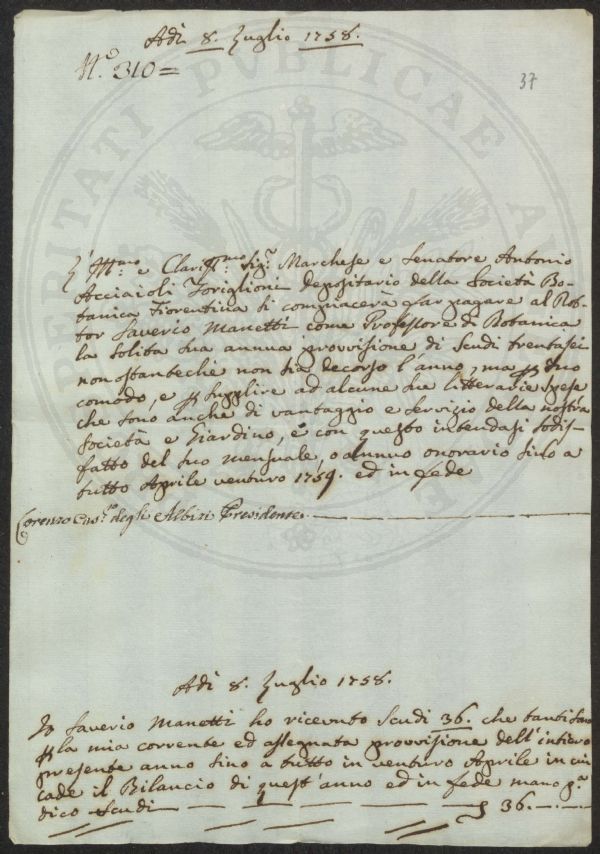 Adì 8. Luglio 1758.
N.º 310=
37
L'Ill.mo e Clariss.mo Sig.r Marchese e Senatore Antonio
Acciaioli Toriglioni depositario della Società Bo-
tanica Fiorentina si compiacerà far pagare al Dot-
tor Saverio Manetti come Professore di Botanica
la solita sua annua provvisione di Scudi trentasei
non ostanteche non sia decorso l'anno, ma p suo
comodo, e p supplire ad alcune sue litterarie spese
che sono anche di vantaggio e servizio della nostra
Società e Giardino, e con questo intendasi sodis-
fatto del suo mensuale, o annuo onorario sino a
tutto Aprile venturo 1759. ed in fede
Lorenzo degli Albizi Presidente
Adì 8. Luglio 1758.
Io Saverio Manetti ho ricevuto Scudi 36. che tanti sono
p la mia corrente ed assegnata provvisione dell'intiero
presente anno sino a tutto in venturo Aprile in cui
cade il Bilancio di quest'anno ed in fede mano p.a
dico Scudi 36.
PERITATI PUBLICAE